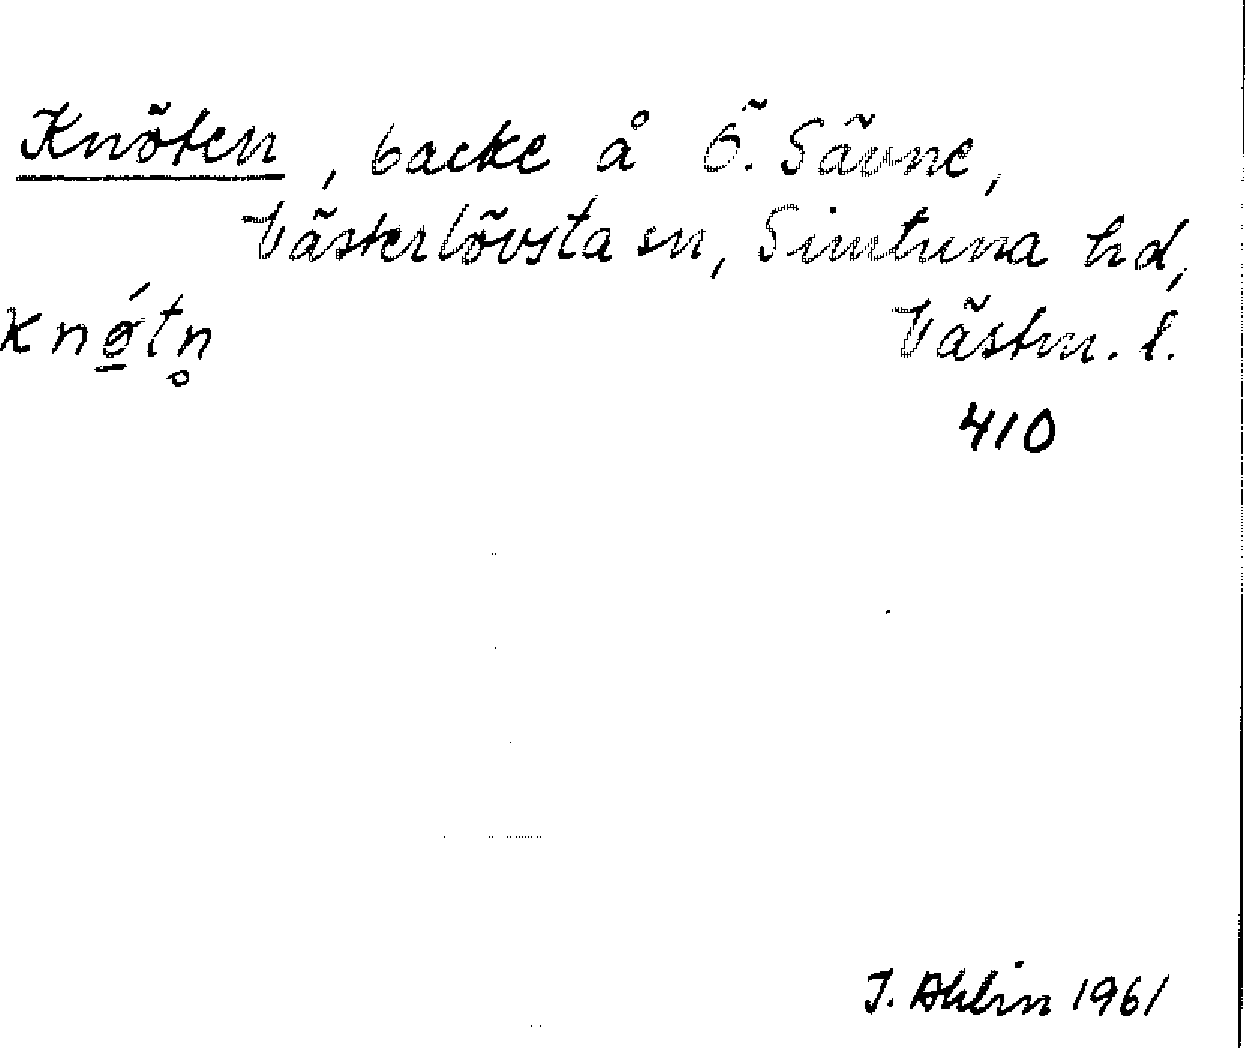 Knöten, backe å Ö. Sävne,
Västerlövsta sn, Simtuna hd,
knǿ̠tn̥
Västm. l.
410
J. Ahlin 1961